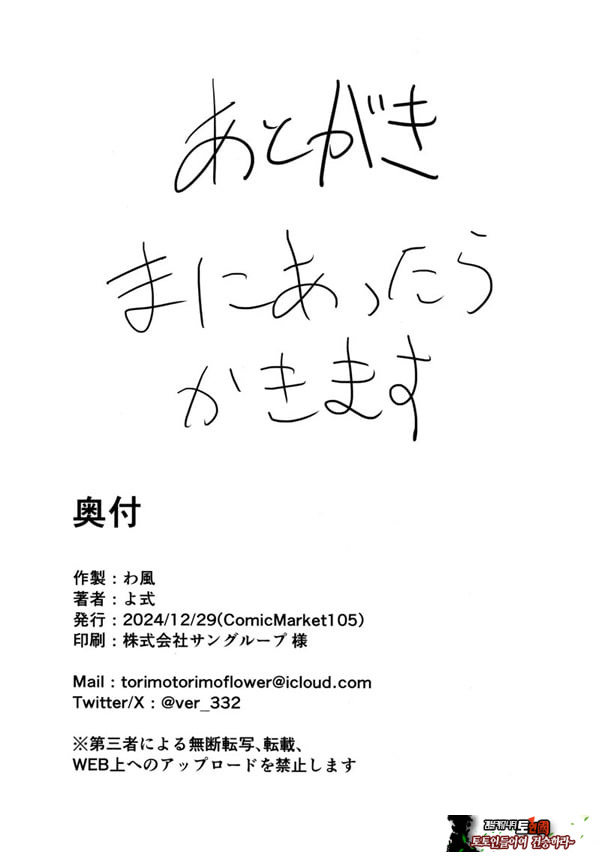 あとがき
まにあったら
かきます
奥付
作製：わ風
著者：よ式
発行：2024/12/29(ComicMarket105)
印刷：株式会社サングループ 様
Mail : torimotorimoflower@icloud.com
Twitter/X : @ver_332
※第三者による無断転写、転載、
WEB上へのアップロードを禁止します